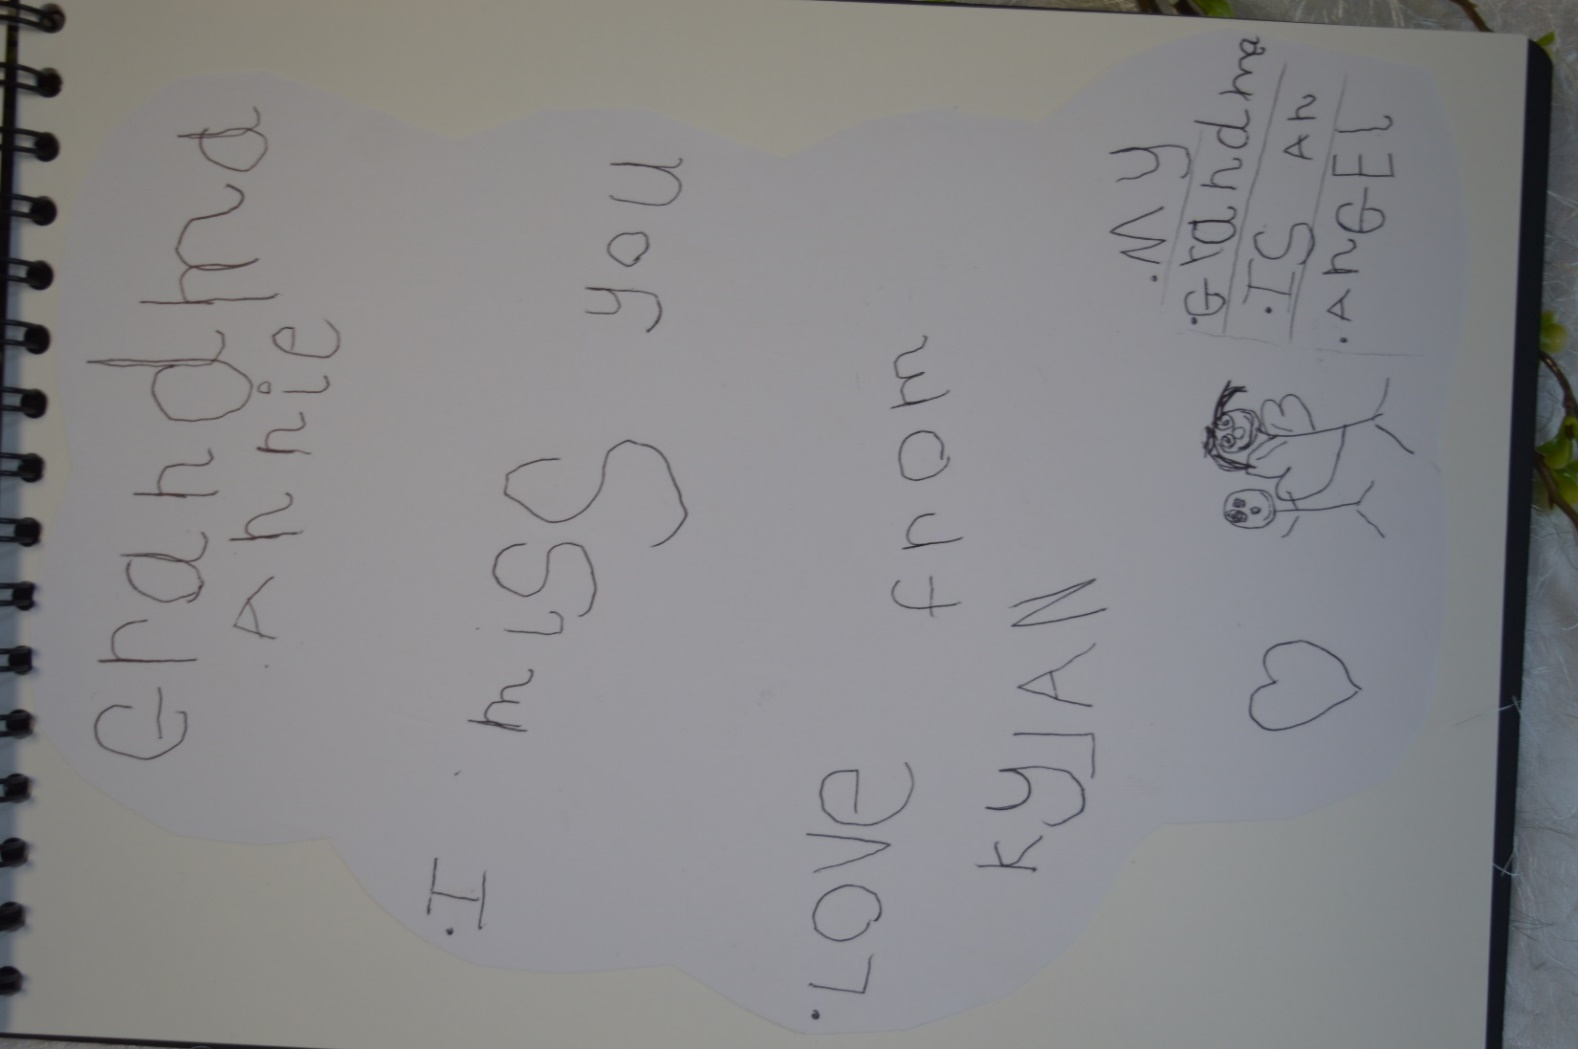 Grandma
Annie
I miss you
LOVE from
KYJAN
MY
Grandma
IS AN
AnGEl